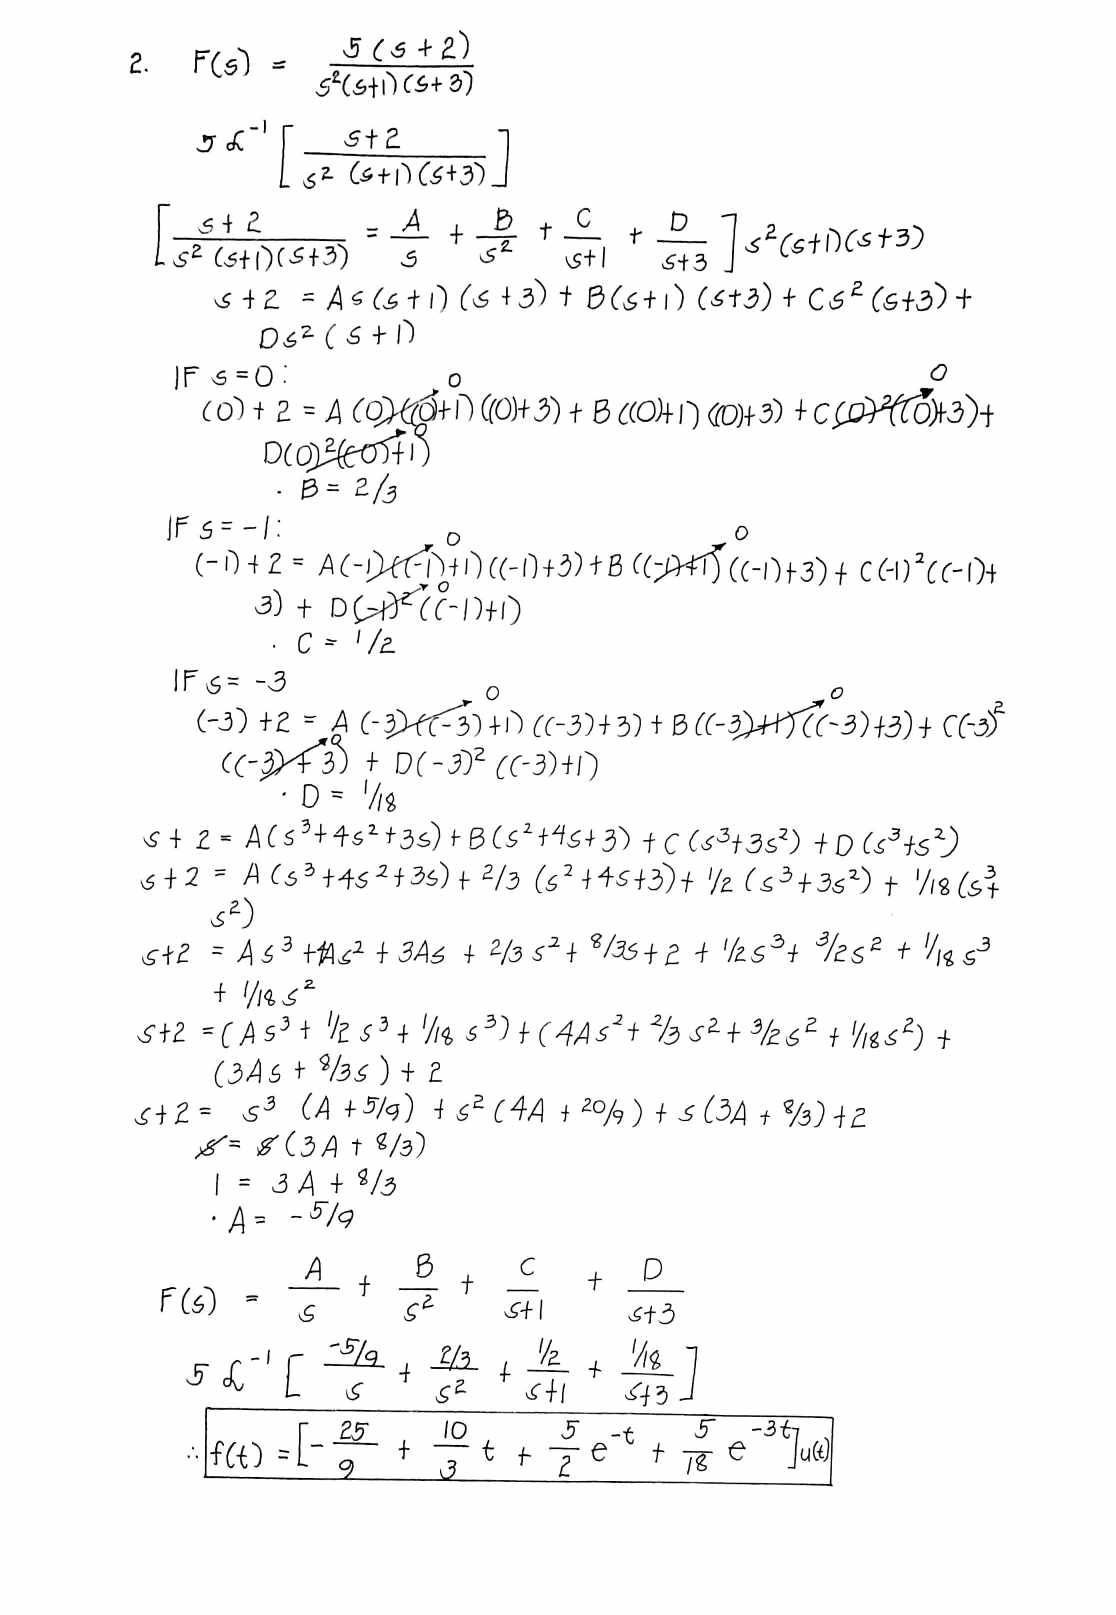 2. F(s) = 5(s+2) / s²(s+1)(s+3)
5 ℒ⁻¹ [ s+2 / s² (s+1)(s+3) ]
[ s+2 / s² (s+1)(s+3) = A/s + B/s² + C/s+1 + D/s+3 ] s²(s+1)(s+3)
s+2 = As(s+1)(s+3) + B(s+1)(s+3) + Cs²(s+3) +
Ds²(s+1)
IF s=0:
(0)+2 = A(0)((0)+1)((0)+3) + B((0)+1)((0)+3) + C(0)²((0)+3) +
D(0)²((0)+1)
· B = 2/3
IF s=-1:
(-1)+2 = A(-1)((-1)+1)((-1)+3) + B((-1)+1)((-1)+3) + C(-1)²((-1)+
3) + D(-1)²((-1)+1)
· C = 1/2
IF s= -3
(-3)+2 = A(-3)((-3)+1)((-3)+3) + B((-3)+1)((-3)+3) + C(-3)²
((-3)+3) + D(-3)²((-3)+1)
· D = 1/18
s+2 = A(s³+4s²+3s) + B(s²+4s+3) + C(s³+3s²) + D(s³+s²)
s+2 = A(s³+4s²+3s) + 2/3(s²+4s+3) + 1/2(s³+3s²) + 1/18(s³+
s²)
s+2 = As³ + 4As² + 3As + 2/3s² + 8/3s + 2 + 1/2s³ + 3/2s² + 1/18s³
+ 1/18s²
s+2 = (As³ + 1/2s³ + 1/18s³) + (4As² + 2/3s² + 3/2s² + 1/18s²) +
(3As + 8/3s) + 2
s+2 = s³(A + 5/9) + s²(4A + 20/9) + s(3A + 8/3) + 2
s = s(3A + 8/3)
1 = 3A + 8/3
· A = -5/9
F(s) = A/s + B/s² + C/s+1 + D/s+3
5 ℒ⁻¹ [ -5/9/s + 2/3/s² + 1/2/s+1 + 1/18/s+3 ]
∴ f(t) = [ -25/9 + 10/3 t + 5/2 e^-t + 5/18 e^-3t ] u(t)